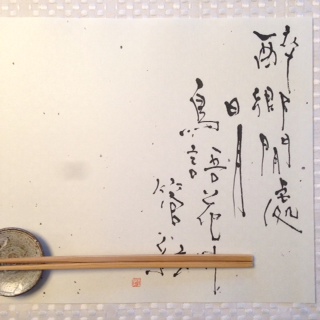 醉郷閒處
日月
鳥語花中
管弦